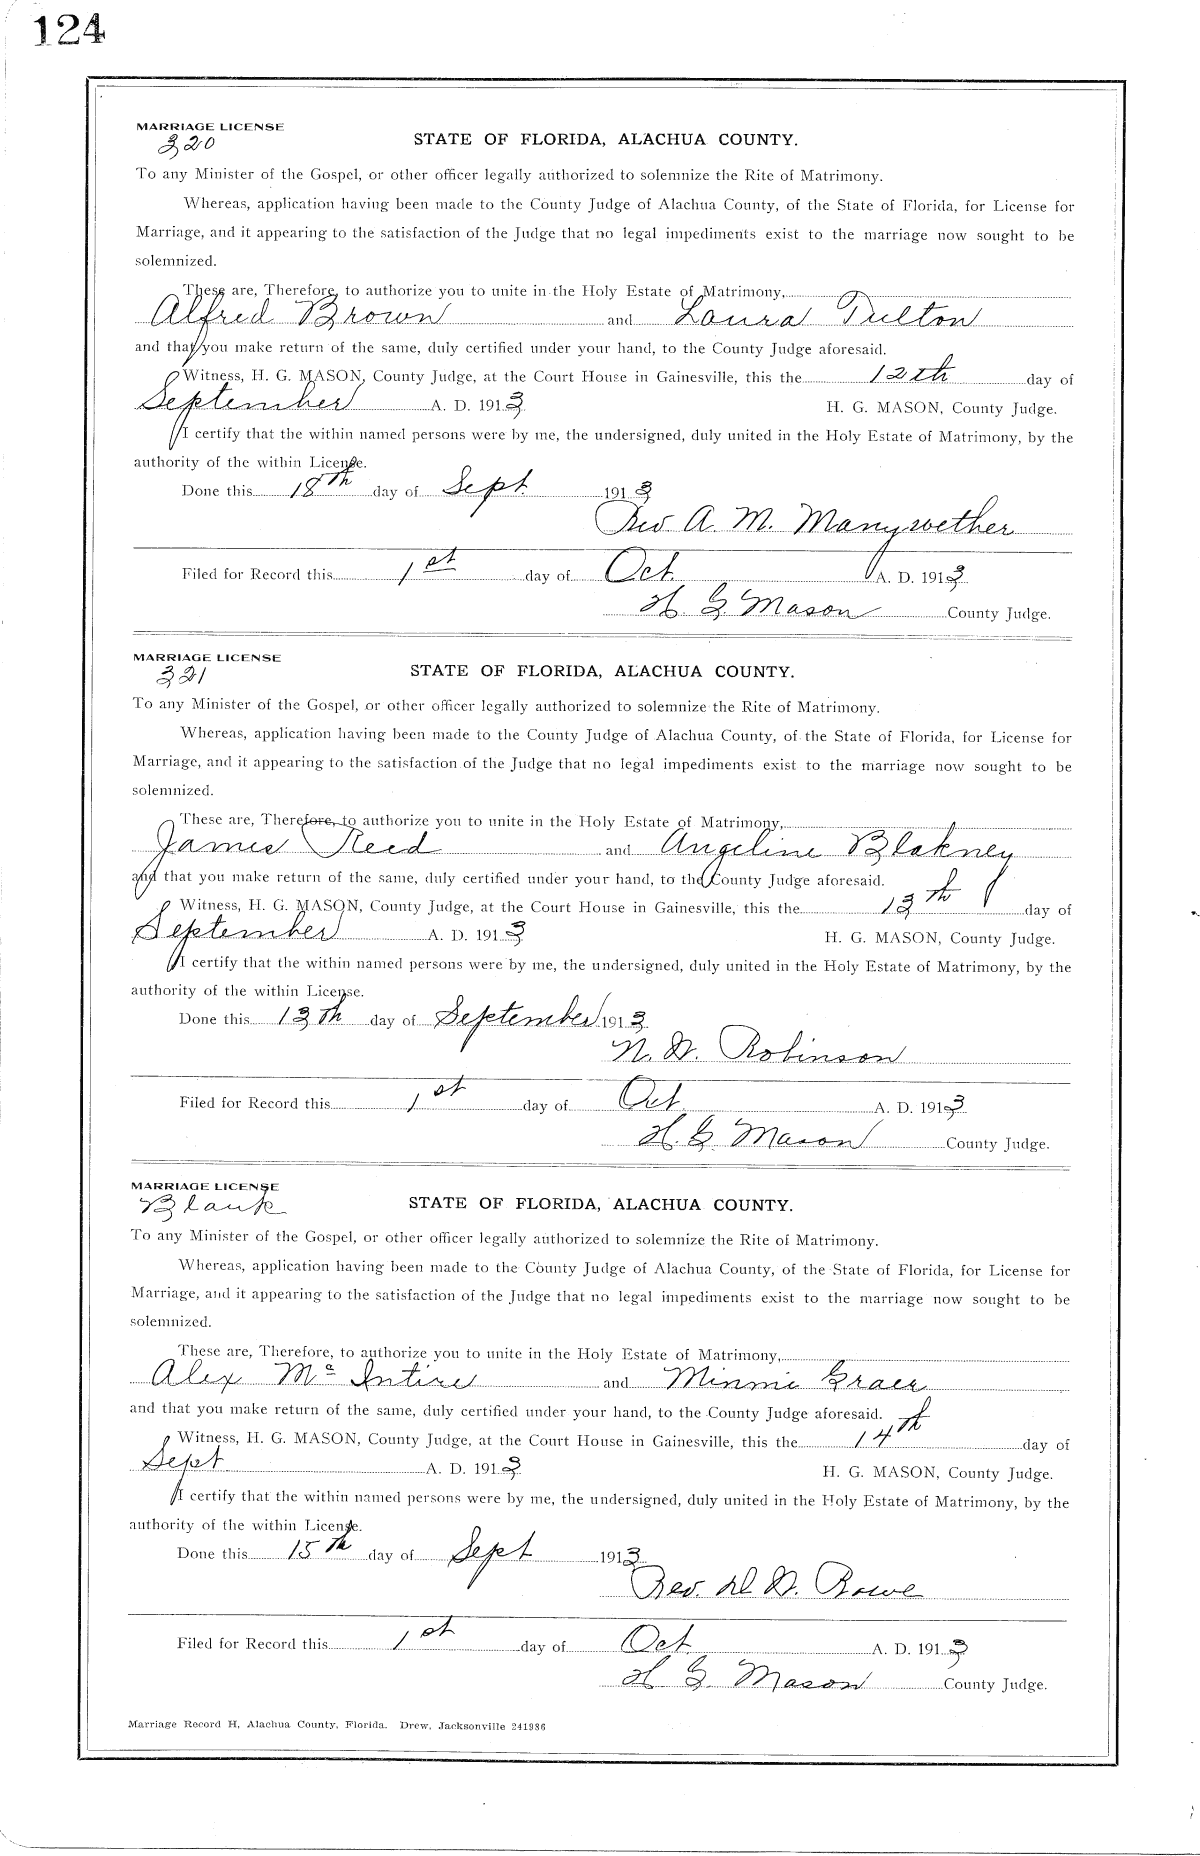 124
MARRIAGE LICENSE
320
STATE OF FLORIDA, ALACHUA COUNTY.
To any Minister of the Gospel, or other officer legally authorized to solemnize the Rite of Matrimony.
Whereas, application having been made to the County Judge of Alachua County, of the State of Florida, for License for
Marriage, and it appearing to the satisfaction of the Judge that no legal impediments exist to the marriage now sought to be
solemnized.
These are, Therefore, to authorize you to unite in the Holy Estate of Matrimony,
Alfred Brown and Laura Tulton
and that you make return of the same, duly certified under your hand, to the County Judge aforesaid.
Witness, H. G. MASON, County Judge, at the Court House in Gainesville, this the 12th day of
September A. D. 1913 H. G. MASON, County Judge.
I certify that the within named persons were by me, the undersigned, duly united in the Holy Estate of Matrimony, by the
authority of the within License.
Done this 18th day of Sept 1913
Rev A. M. Manywether
Filed for Record this 1st day of Oct. A. D. 1913
H. G Mason County Judge.
MARRIAGE LICENSE
321
STATE OF FLORIDA, ALACHUA COUNTY.
To any Minister of the Gospel, or other officer legally authorized to solemnize the Rite of Matrimony.
Whereas, application having been made to the County Judge of Alachua County, of the State of Florida, for License for
Marriage, and it appearing to the satisfaction of the Judge that no legal impediments exist to the marriage now sought to be
solemnized.
These are, Therefore, to authorize you to unite in the Holy Estate of Matrimony,
James Reed and Angeline Blakney
and that you make return of the same, duly certified under your hand, to the County Judge aforesaid.
Witness, H. G. MASON, County Judge, at the Court House in Gainesville, this the 13th day of
September A. D. 1913 H. G. MASON, County Judge.
I certify that the within named persons were by me, the undersigned, duly united in the Holy Estate of Matrimony, by the
authority of the within License.
Done this 13th day of September 1913
N. W. Robinson
Filed for Record this 1st day of Oct. A. D. 1913
H. G Mason County Judge.
MARRIAGE LICENSE
Blank
STATE OF FLORIDA, ALACHUA COUNTY.
To any Minister of the Gospel, or other officer legally authorized to solemnize the Rite of Matrimony.
Whereas, application having been made to the County Judge of Alachua County, of the State of Florida, for License for
Marriage, and it appearing to the satisfaction of the Judge that no legal impediments exist to the marriage now sought to be
solemnized.
These are, Therefore, to authorize you to unite in the Holy Estate of Matrimony,
Alex Mc Intire and Minnie Graer
and that you make return of the same, duly certified under your hand, to the County Judge aforesaid.
Witness, H. G. MASON, County Judge, at the Court House in Gainesville, this the 14th day of
Sept A. D. 1913 H. G. MASON, County Judge.
I certify that the within named persons were by me, the undersigned, duly united in the Holy Estate of Matrimony, by the
authority of the within License.
Done this 15th day of Sept 1913
Rev. W. Rowe
Filed for Record this 1st day of Oct. A. D. 1913
H G. Mason County Judge.
Marriage Record H, Alachua County, Florida. Drew, Jacksonville 241986